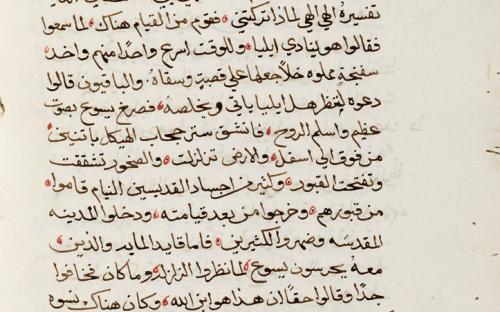 تفسيره الهي الهي لماذا تركتني فقوم من القيام هناك لما سمعوا
فقالوا هو ينادي ايليا وللوقت اسرع واحدا منهم واخد
سفنجه مملوه خلا جعلها علي قصبه وسقاه والباقون قالوا
دعوه لينظر هل ايليا ياتي ويخلصه فصرخ يسوع بصوت
عظم واسلم الروح فانشق ستر حجاب الهيكل باتنين
من فوق الي اسفل والارض تزلزلت والصخور تشققت
وتفتحت القبور وكثير من اجساد القديسين النيام قاموا
من قبورهم وخرجوا من بعد قيامته ودخلوا المدينه
المقدسه وظهروا لكثيرين فاما قايد المايه والذين
معه يحرسون يسوع لما نظروا الزلزله وما كان فخافوا
جدا وقالوا حقا ان هذا هو ابن الله وكان هناك نسوه